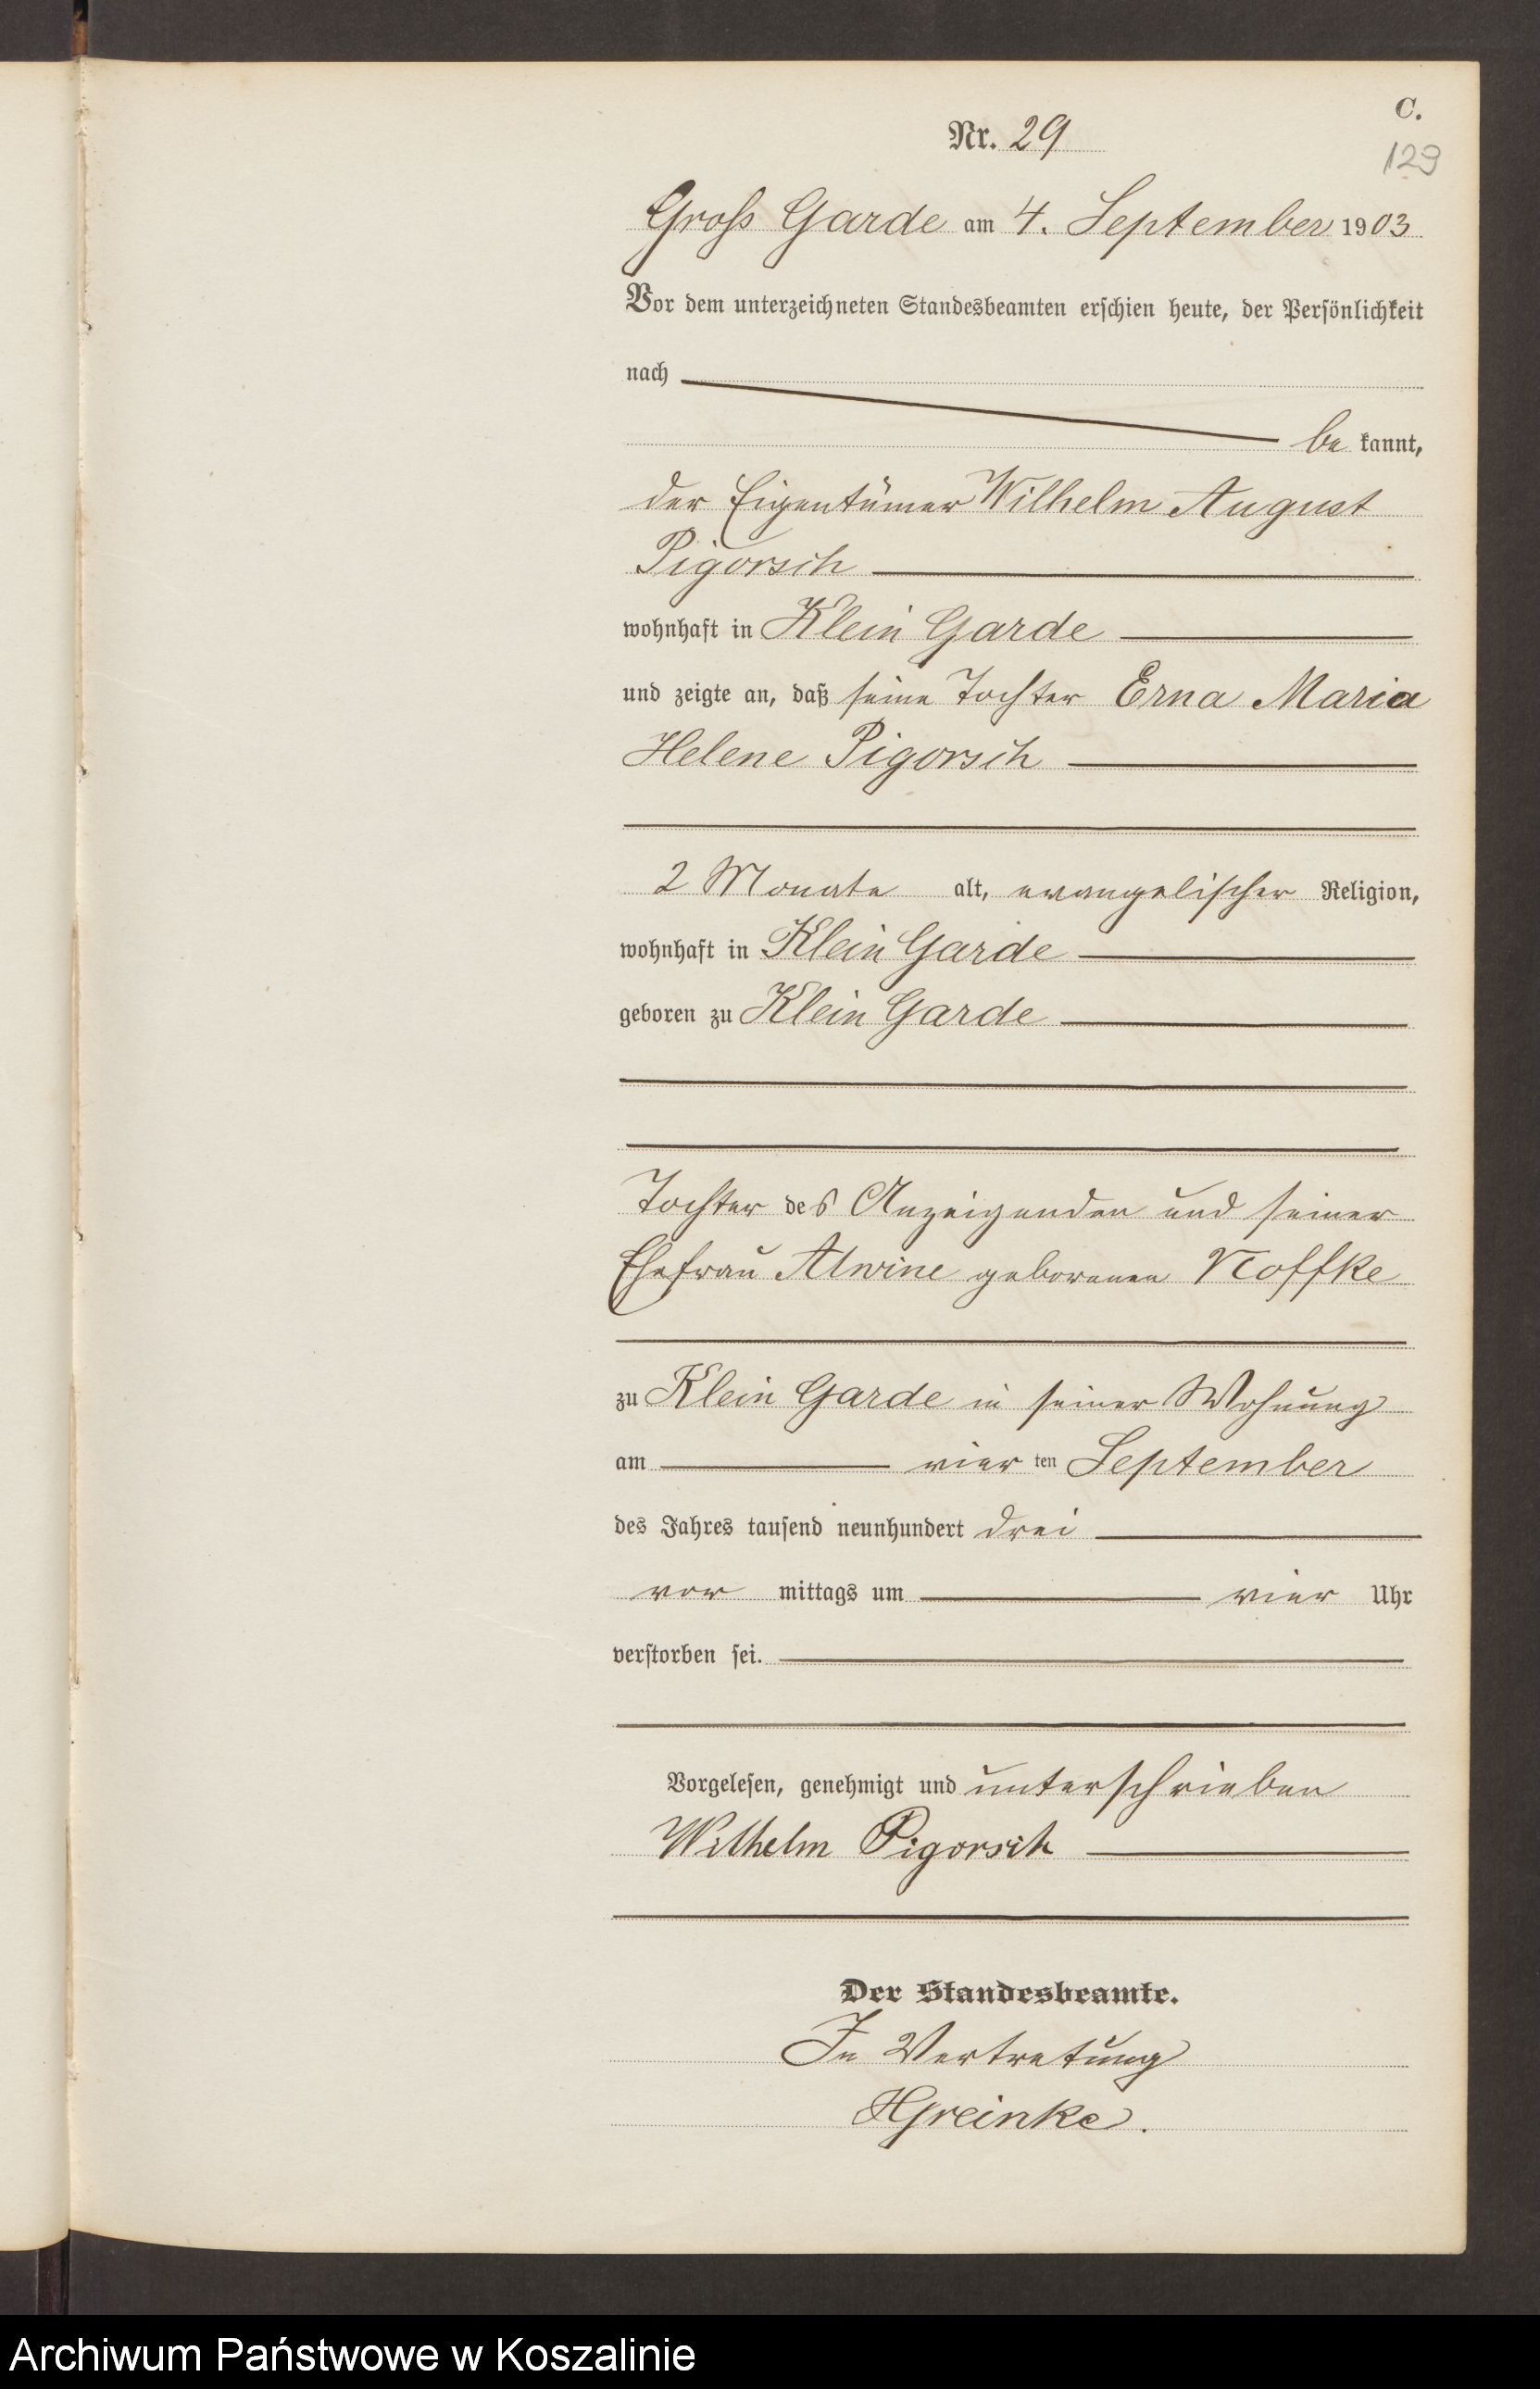 C.
Nr. 29
129
Gross Garde am 4. September 1903
Vor dem unterzeichneten Standesbeamten erschien heute, der Persönlichkeit
nach
be kannt,
der Eigentümer Wilhelm August
Pigorsch
wohnhaft in Klein Garde
und zeigte an, daß seine Tochter Erna Maria
Helene Pigorsch
2 Monate alt, evangelischer Religion,
wohnhaft in Klein Garde
geboren zu Klein Garde
Tochter des Anzeigenden und seiner
Ehefrau Alwine geborenen Noffke
zu Klein Garde in seiner Wohnung
am vier ten September
des Jahres tausend neunhundert drei
vor mittags um vier Uhr
verstorben sei.
Vorgelesen, genehmigt und unterschrieben
Wilhelm Pigorsch
Der Standesbeamte.
In Vertretung
HGreinke.
Archiwum Państwowe w Koszalinie